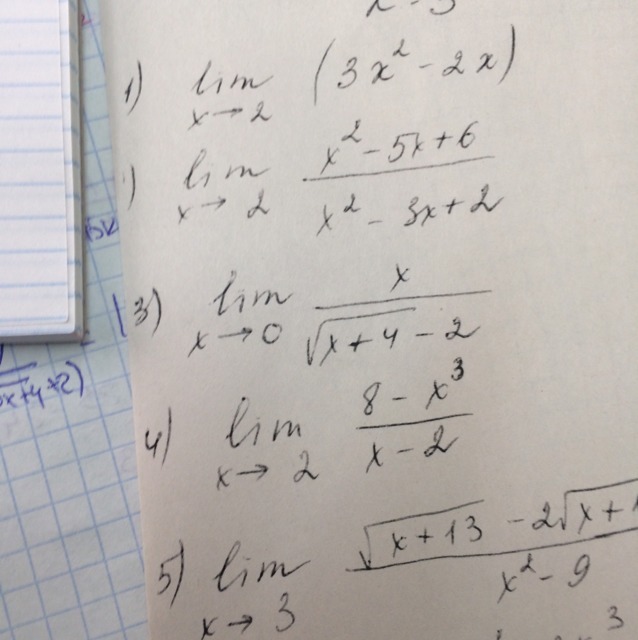 1) lim x→2 (3x² - 2x)
) lim x→2 (x² - 5x + 6)/(x² - 3x + 2)
3) lim x→0 x/(√(x+4) - 2)
4) lim x→2 (8 - x³)/(x - 2)
5) lim x→3 (√(x+13) - 2√(x+1)/(x² - 9)